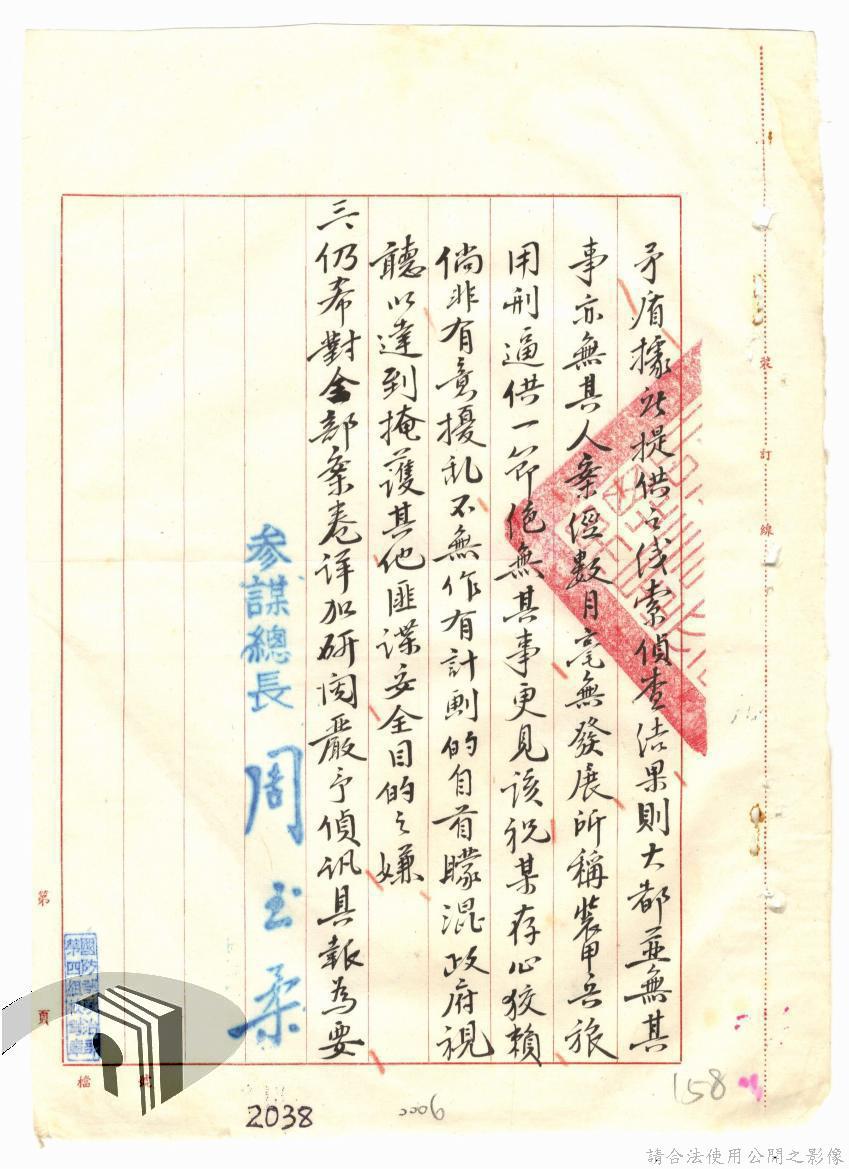 矛盾據所提供之线索偵查结果則大都並無其
事亦無其人案經數月毫無發展所稱裝甲兵旅
用刑逼供一節絕無其事更見該祝某存心狡賴
倘非有意擾乱不無作有計劃的自首矇混政府視
聽以達到掩護其他匪諜安全目的之嫌
三、仍希對全部案卷详加研閱嚴予偵訊具報為要
參謀總長 周至柔
裝訂線
第 頁
檔 號
2038
0006
158
請合法使用公開之影像